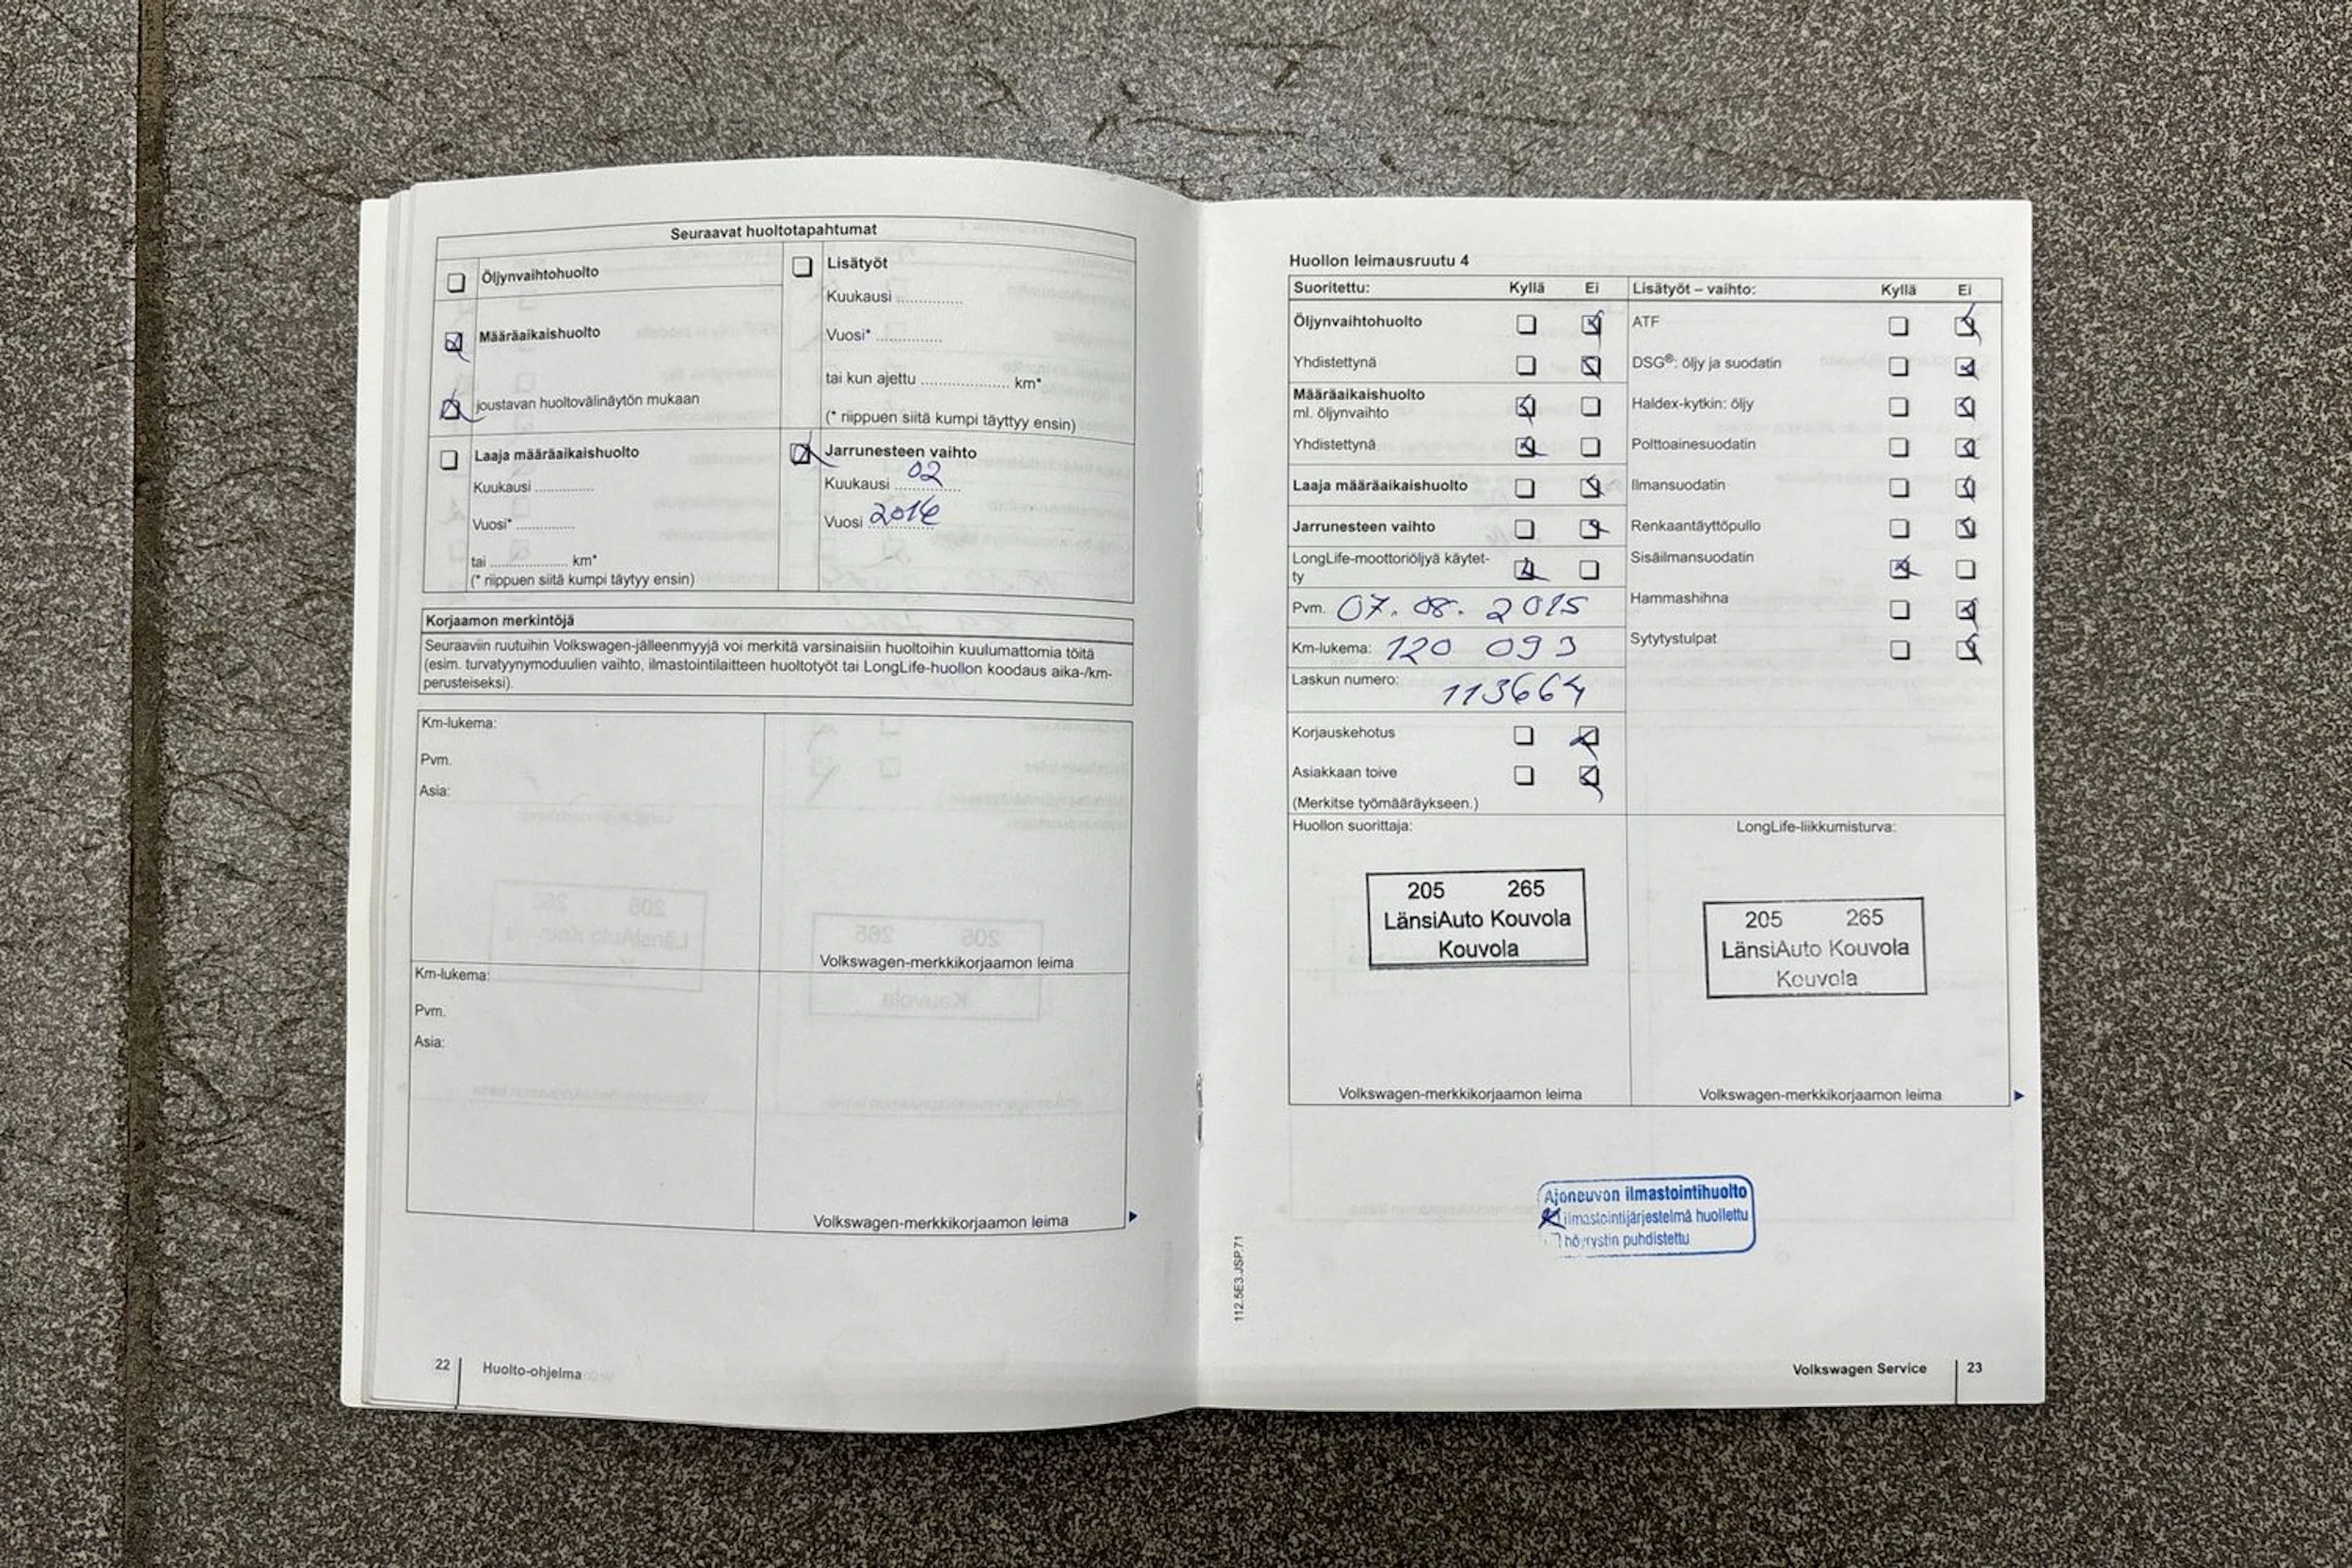 Seuraavat huoltotapahtumat
Öljynvaihtohuolto
Määräaikaishuolto
joustavan huoltovälinäytön mukaan
Laaja määräaikaishuolto
Kuukausi ..............
Vuosi* ..............
tai .................. km*
(* riippuen siitä kumpi täytyy ensin)
Lisätyöt
Kuukausi ..............
Vuosi* ..............
tai kun ajettu .................... km*
(* riippuen siitä kumpi täyttyy ensin)
Jarrunesteen vaihto
Kuukausi 02
Vuosi 2016
Korjaamon merkintöjä
Seuraaviin ruutuihin Volkswagen-jälleenmyyjä voi merkitä varsinaisiin huoltoihin kuulumattomia töitä
(esim. turvatyynymoduulien vaihto, ilmastointilaitteen huoltotyöt tai LongLife-huollon koodaus aika-/km-
perusteiseksi).
Km-lukema:
Pvm.
Asia:
Volkswagen-merkkikorjaamon leima
Km-lukema:
Pvm.
Asia:
Volkswagen-merkkikorjaamon leima
22 Huolto-ohjelma
Huollon leimausruutu 4
Suoritettu: Kyllä Ei
Öljynvaihtohuolto
Yhdistettynä
Määräaikaishuolto
ml. öljynvaihto
Yhdistettynä
Laaja määräaikaishuolto
Jarrunesteen vaihto
LongLife-moottoriöljyä käytet-
ty
Pvm. 07. 08. 2015
Km-lukema: 120 093
Laskun numero: 113664
Korjauskehotus
Asiakkaan toive
(Merkitse työmääräykseen.)
Lisätyöt – vaihto: Kyllä Ei
ATF
DSG®: öljy ja suodatin
Haldex-kytkin: öljy
Polttoainesuodatin
Ilmansuodatin
Renkaantäyttöpullo
Sisäilmansuodatin
Hammashihna
Sytytystulpat
Huollon suorittaja:
205 265
LänsiAuto Kouvola
Kouvola
Volkswagen-merkkikorjaamon leima
LongLife-liikkumisturva:
205 265
LänsiAuto Kouvola
Kouvola
Volkswagen-merkkikorjaamon leima
Ajoneuvon ilmastointihuolto
ilmastointijärjestelmä huollettu
höyrystin puhdistettu
112.5E3.JSP.71
Volkswagen Service 23